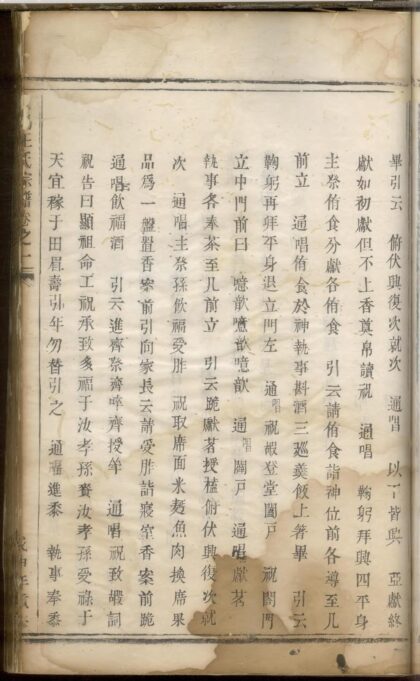 畢引云 俯伏興復次就次 通唱 以下皆興 亞獻終
獻如初獻但不上香奠帛讀祝 通唱 鞠躬拜興四平身
主祭侑食分獻各侑食 引云請侑食詣神位前各導至几
前立 通唱侑食於神執事斟酒三廵羹飯上箸畢 引云
鞠躬再拜平身退立門左 通唱祝嘏登堂闔戶 祝閤門
立中門前曰 噫歆噫歆噫歆 通唱闢戶 通唱獻茗
執事各奉茶至几前立 引云跪獻茗授植俯伏興復次就
次 通唱主祭孫飲福受胙 祝取席面米麪魚肉換席果
品爲一盤置香案前引向家長云請受胙詣寢室香案前跪
通唱飲福酒 引云進齊祭齊啐齊授竿 通唱祝致嘏詞
祝告曰顯祖命工祝承致多福于汝孝孫賚汝孝孫受祿于
天宜稼于田眉壽引年勿替引之 通唱進黍 執事奉黍
汪氏宗譜卷之一